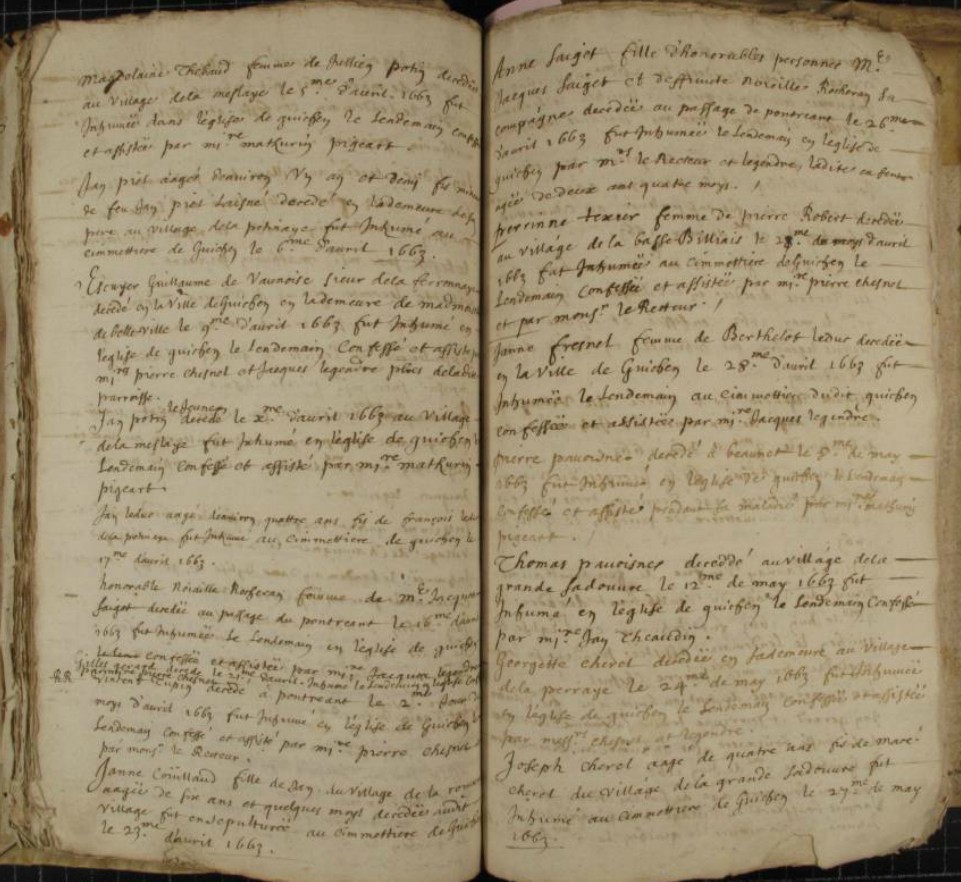 Magdolaine Thebaud femme de Jullien potin decedée
au village dela meslaye le 5.me d'avril. 1663 fut
Inhumée dans l'eglise de guichen le Lendemain
et assistée par mi.re mathurin pigeart.
Jan piel aagée d'environ Un an et demi fis
de feu Jan piel Laisné decedé en lademeure de
pere au village dela fut Inhumé au
cimmettiere de Guichen le 6.me d'avril 1663.
Escuyer Guillaume de Vaunoise sieur dela ferronnays
decedé en la Ville de Guichen en lademeure de
de belle ville le 9.me d'avril 1663 fut Inhumé en
l'eglise de guichen le Lendemain Confessé et assisté
m.rs pierre chesnel et Jacques legendre pbres dela
parroisse.
Jan potin leJeune decedé le d'avril 1663 au Village
dela meslaye fut Inhumé en l'eglise de guichen
Lendemain Confessé et assisté par mi.re mathurin
pigeart
Jan leduc aagé denviron quattre ans fis de françois
dela fut Inhumé au cimmettiere de guichen le
17.me d'avril 1663.
honorable Noraille Rosseran femme de M.e Jacques
Saiget decedée au passage du pontreant le 16.me d'avril
1663 fut Inhumée le Lendemain en l'eglise de guichen
Confessée et assistée par mi.re Jacques legendre
Gilles gerard decedé le 21.me d'avril Inhumé le Lendemain
RR pierre chesnel
decedé a pontreant le 2. jour
moys d'avril 1663 fut Inhumé en l'eglise de Guichen
Lendemain Confessé et assisté par mi.re pierre chesnel
par mons.r le Recteur.
Janne Couillaud fille de Jan du village de la
aagée de six ans et quelques moys decedée audit
village fut ensepulturée au cimmettiere de Guichen
le 23.me d'avril 1663.
Anne Saiget fille d'honorables personnes M.e
Jacques Saiget et deffuncte Noreille Rosseran Sa
compagne decedée au passage de pontreant le 26.me
d'avril 1663 fut Inhumée le Lendemain en l'eglise de
guichen par m.rs le Recteur et legendre, ladite enfent
agée de deux ans quatre moys. /
perrinne texier femme de pierre Robert decedée
au village de la basse Billiais le 28.me de moys d'avril
1663 fut Inhumée au cimmettiere de Guichen le
Lendemain Confessée et assistée par mi.re pierre chesnel
et par mons.r le Recteur. /
Janne fresnel femme de Berthelot leduc decedée
en la Ville de Guichen le 28.me d'avril 1663 fut
Inhumée le Lendemain au cimmettiere dudit guichen
confessée et assistée par mi.re Jacques legendre.
pierre pauvoisnes decedé à le 5.me de may
1663 fut Inhumé en l'eglise de guichen le Lendemain
Confessé et assisté pendant sa maladie par mi.re mathurin
pigeart. /
Thomas pauvoisnes decedé au village dela
grande Ladouvre le 12.me de may 1663 fut
Inhumé en l'eglise de guichen le Lendemain Confessé
par mi.re Jan Theaudin.
Georgette cherel decedée en lademeure au Village
dela perraye le 24.me de may 1663 fut Inhumée
en l'eglise de guichen le Lendemain confessée et assistée
par mess.rs chesnel et legendre.
Joseph cherel aagé de quatre ans fis de macé
cherel du village de la grande Ladouvre fut
Inhumé au cimmettiere de Guichen le 27.me de may
1663.